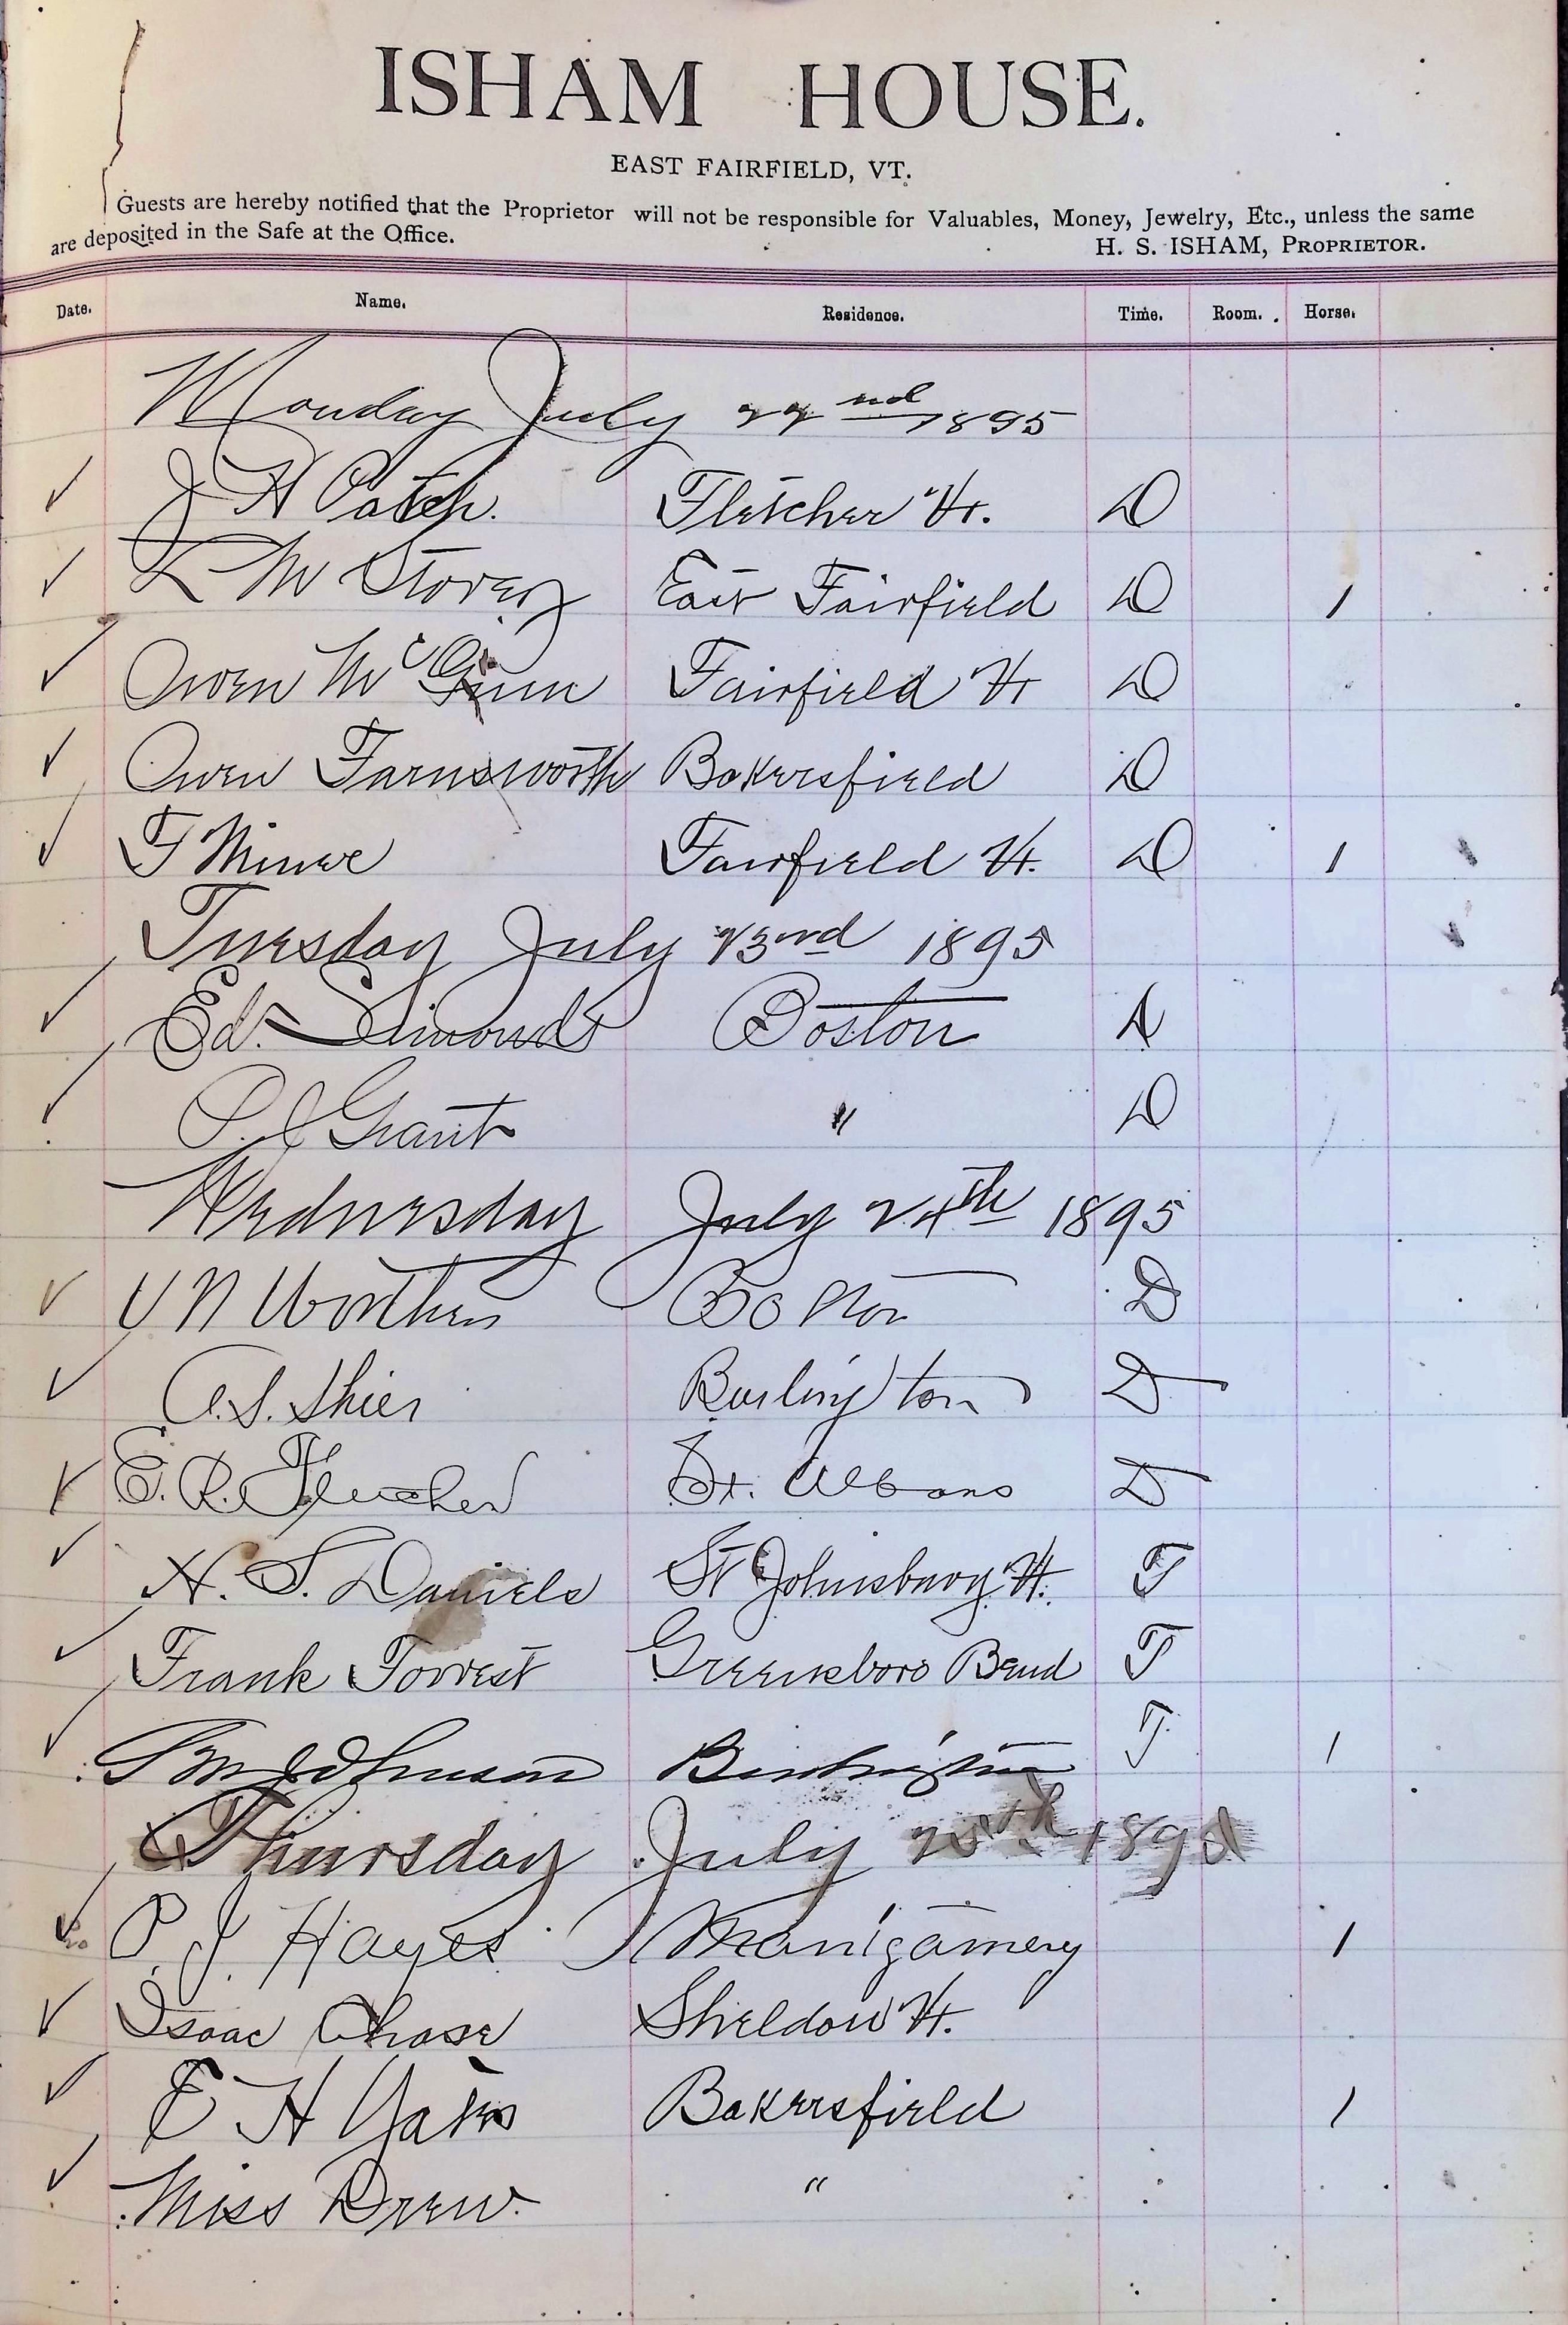 ISHAM HOUSE.
EAST FAIRFIELD, VT.
Guests are hereby notified that the Proprietor will not be responsible for Valuables, Money, Jewelry, Etc., unless the same
are deposited in the Safe at the Office.
H. S. ISHAM, PROPRIETOR.
Date. Name. Residence. Time. Room. Horse.
Monday July 22nd 1895
✓ J H Patch. Fletcher Vt. D
✓ L M Storey East Fairfield D 1
✓ Owen McGinn Fairfield Vt D
✓ Owen Farnsworth Bakersfield D
✓ F Miner Fairfield Vt. D 1
Tuesday July 23rd 1895
✓ Ed. Simonds Boston
✓ P. J Grant " D
Wednesday July 24th 1895
✓ Worthen Boston D
✓ A. S. Shier Burlington D
✓ E. R. Fletcher St. Albans D
✓ H. S. Daniels St Johnsbury Vt. T
✓ Frank Forrest Greensboro Bend T
✓ Johnson Burlington T 1
Thursday July 25th 1895
✓ P. J. Hayes Montgomery 1
✓ Isaac Chase Sheldon Vt.
✓ E H Yates Bakersfield 1
✓ Miss Drew. "